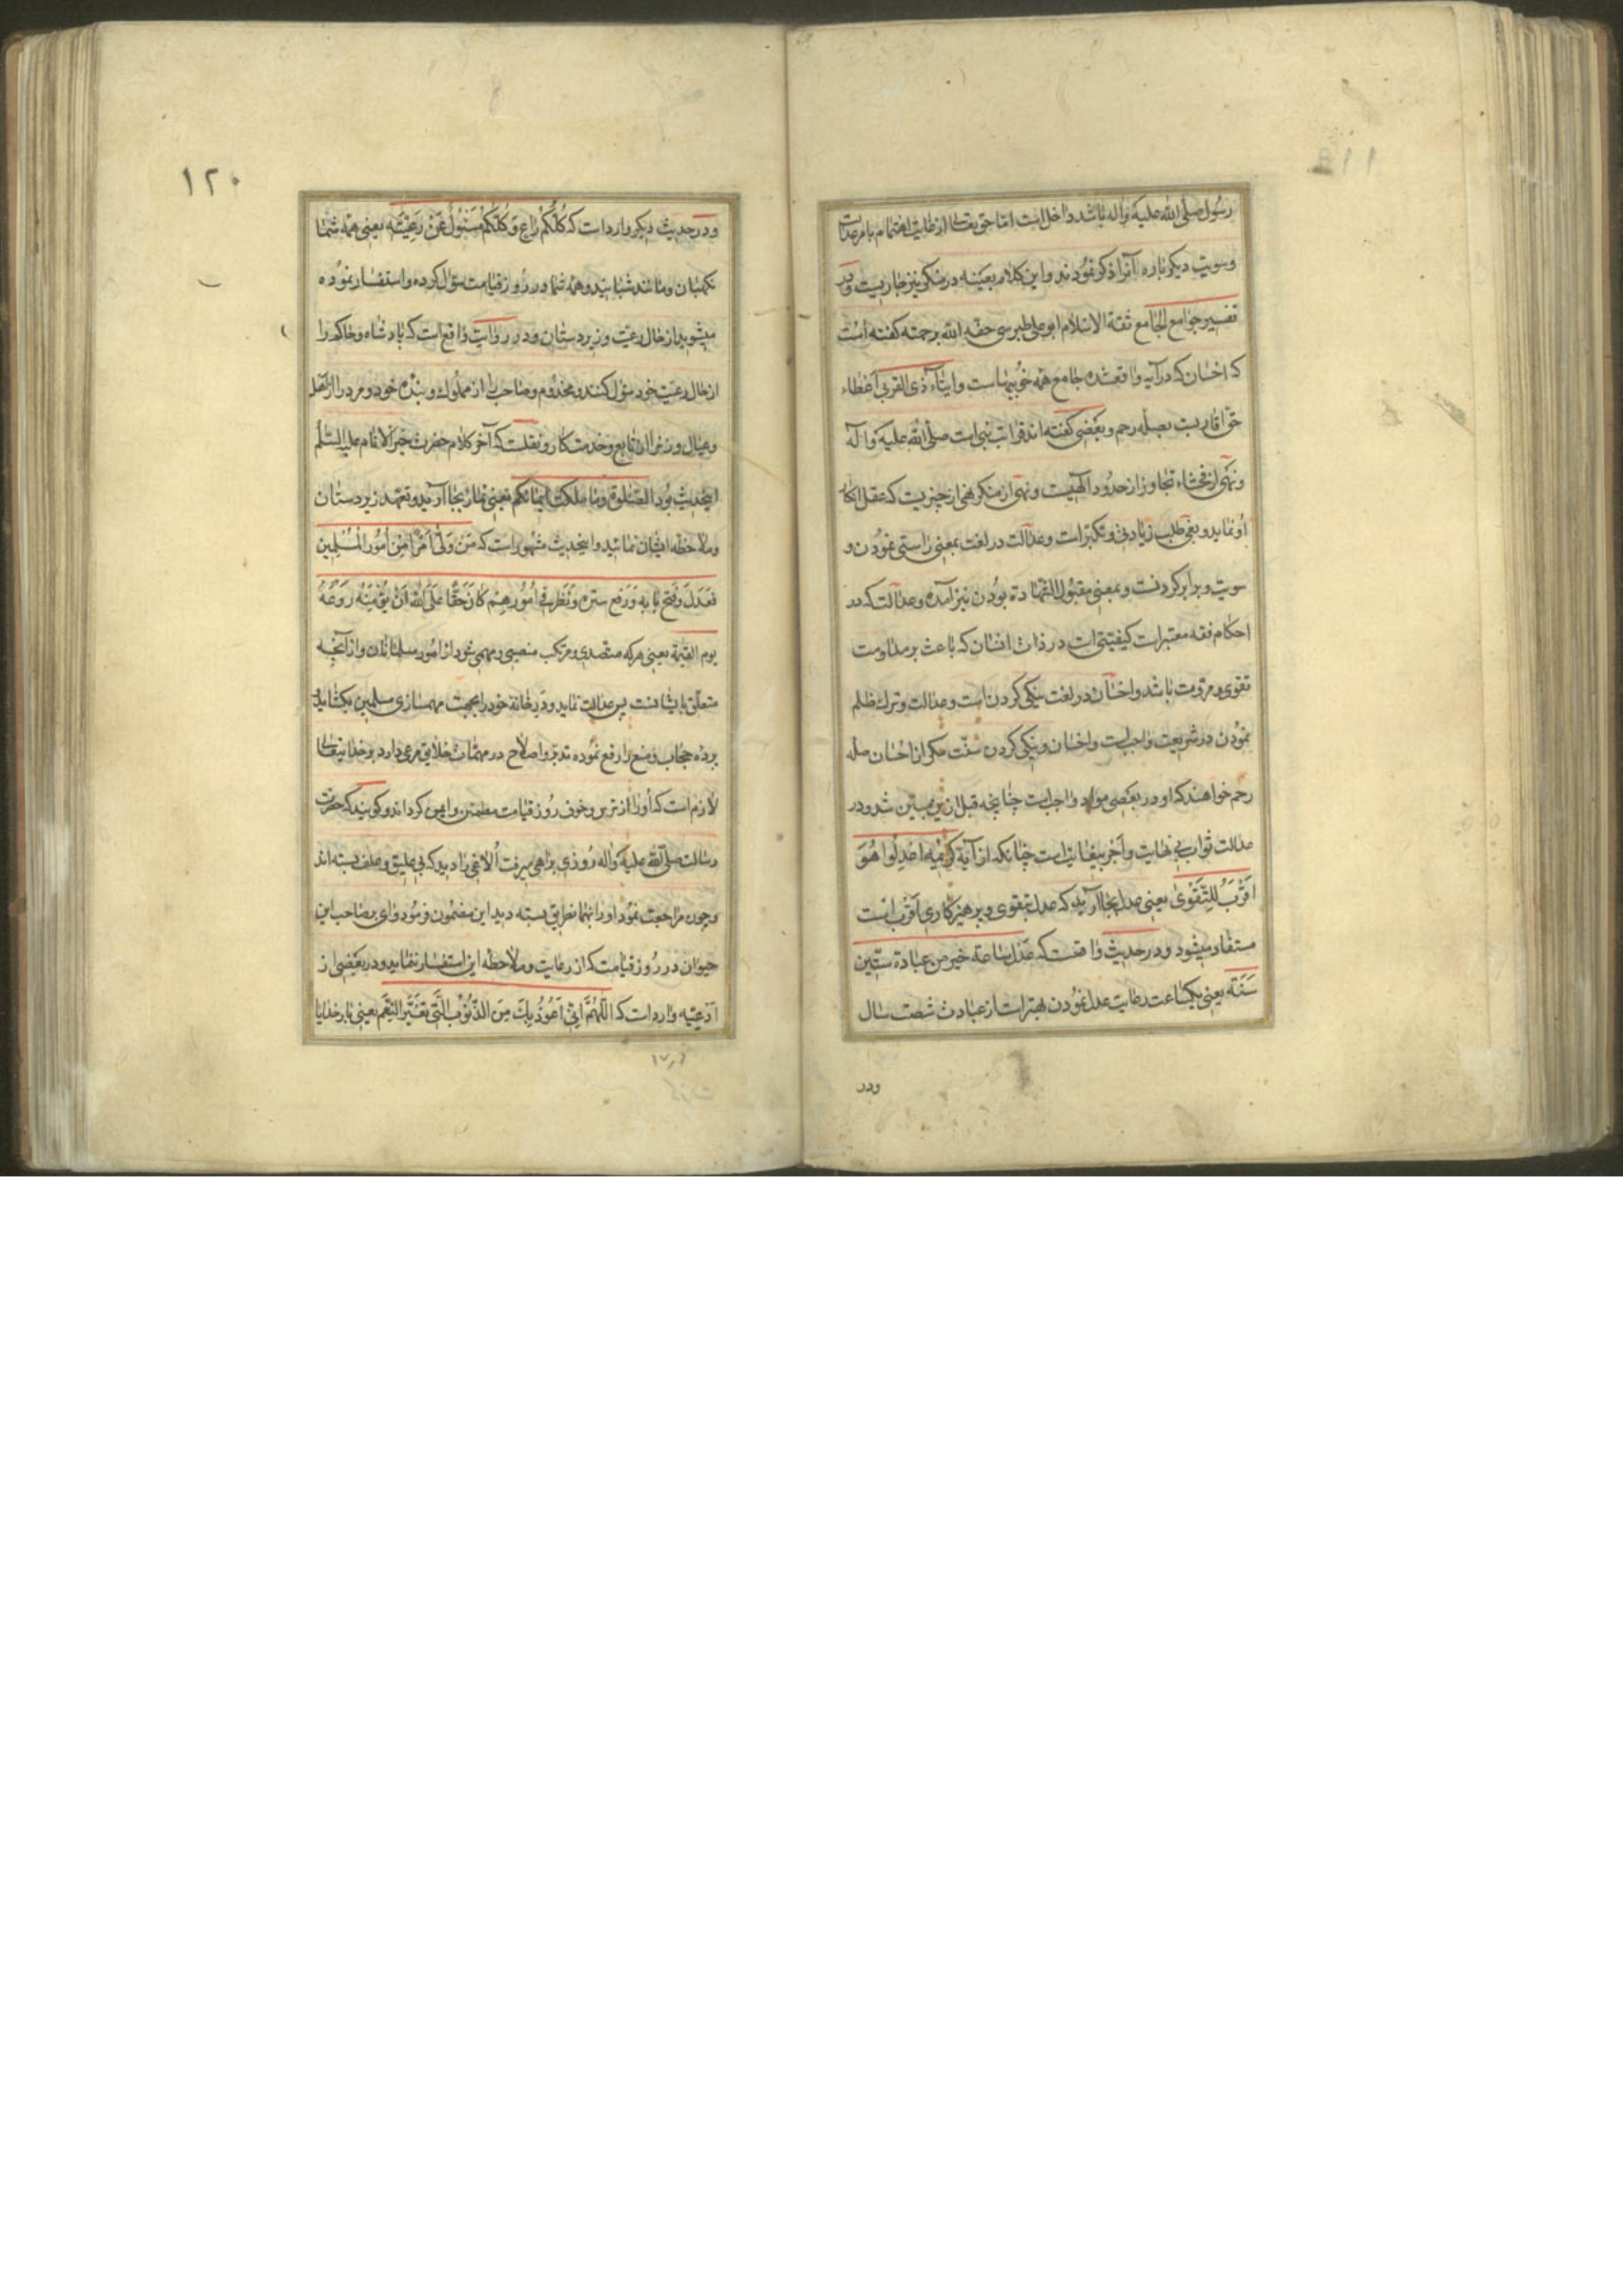 رسول صلی الله علیه و اله باشد داخل است اما حق تعالی از غایت اهتمام بامر عدالت
و سویت دیگر باره آنرا ذکر نمودند و این کلام بعینه در منکر نیز جاریست و در
تفسیر جوامع الجامع ثقة الاسلام ابو علی طبرسی حفه الله برحمته کفته است
که احسان که در آیه واقعشده جامع همه خوبیهاست و ایتاء ذی القربی اعطاء
حق اقاربست بصله رحم و بعضی کفته اند قرابت نبی است صلی الله علیه و آله
و نهی از فحشاء تجاوز از حدود الهیست و نهی از منکر نهی از چیزیست که عقل انکار
او نماید و بغی طلب زیادتی و تکبر است و عدالت در لغت بمعنی راستی نمودن و
سویت و برابر کردنست و بمعنی مقبول الشهادة بودن نیز آمده و عدالت که در
احکام فقه معتبر است کیفیتی است در ذات انسان که باعث بر مداومت
تقوی و مروت باشد و احسان در لغت نیکی کردن است و عدالت و ترک ظلم
نمودن در شریعت واجبست و احسان و نیکی کردن سنت مکر از احسان صله
رحم خواهند که او در بعضی مواد واجبست چنانچه قبل ازین مبین شد و در
عدالت ثواب بی نهایت و اجر بیغایتست چنانکه از آیه کریمه اعدلوا هو
اقرب للتقوی یعنی عدل بجا آرید که عدل بتقوی و پرهیزکاری اقرب است
مستفاد میشود و در حدیث واقعست که عدل ساعة خیر من عبادة ستین
سنة یعنی یکساعت رعایت عدل نمودن بهتر است از عبادت شصت سال
ودر
۱۲۰
و در حدیث دیگر وارد است که کلکم راع و کلکم مسئول عن رعیته یعنی همه شما
نکهبان و مانند شبانید و همه شما در روز قیامت سؤال کرده و استفسار نموده
میشوید از حال رعیت و زیردستان و در روایت واقع است که پادشاه و حاکم را
از حال رعیت خود سؤال کنند و مخدوم و صاحب را از مملوک و بنده خود و مرد را از اهل
و عیال و زنرا از تابع و خدمتکار و نقلست که آخر کلام حضرت خیر الانام علیه السلم
اینحدیث بود الصلوة و ما ملکت ایمانکم یعنی نماز بجا آرید و تعهد زیردستان
و ملاحظه ایشان نمائید و اینحدیث مشهور است که من ولی امرا من امور المسلمین
فعدل و فتح بابه و رفع ستره و نظر فی امورهم کان حقا علی الله ان یؤمنه روعة
یوم القیمة یعنی هر که متصدی و مرتکب منصبی و مهمی شود از امور مسلمانان و از آنچه
متعلق بایشانست پس عدالت نماید و در خانه خود را بجهت مهمسازی مسلمین بکشاید و
پرده حجاب و منع را رفع نموده تدبر و اصلاح در مهمات خلایق مرعی دارد بر خدایتعالی
لازم است که او را از ترس و خوف روز قیامت مطمئن و ایمن کرداند و کویند که حضرت
رسالت صلی الله علیه و اله روزی براهی میرفت الاغی را دید که بی علیق و علف بسته اند
و چون مراجعت نمود او را بهمان طریق بسته دید این مضمون فرمود وای بر صاحب این
حیوان در روز قیامت که از رعایت و ملاحظه این استفسار نمایند و در بعضی از
ادعیه وارد است که اللهم انی اعوذ بک من الذنوب التی تغیر النعم یعنی بار خدایا